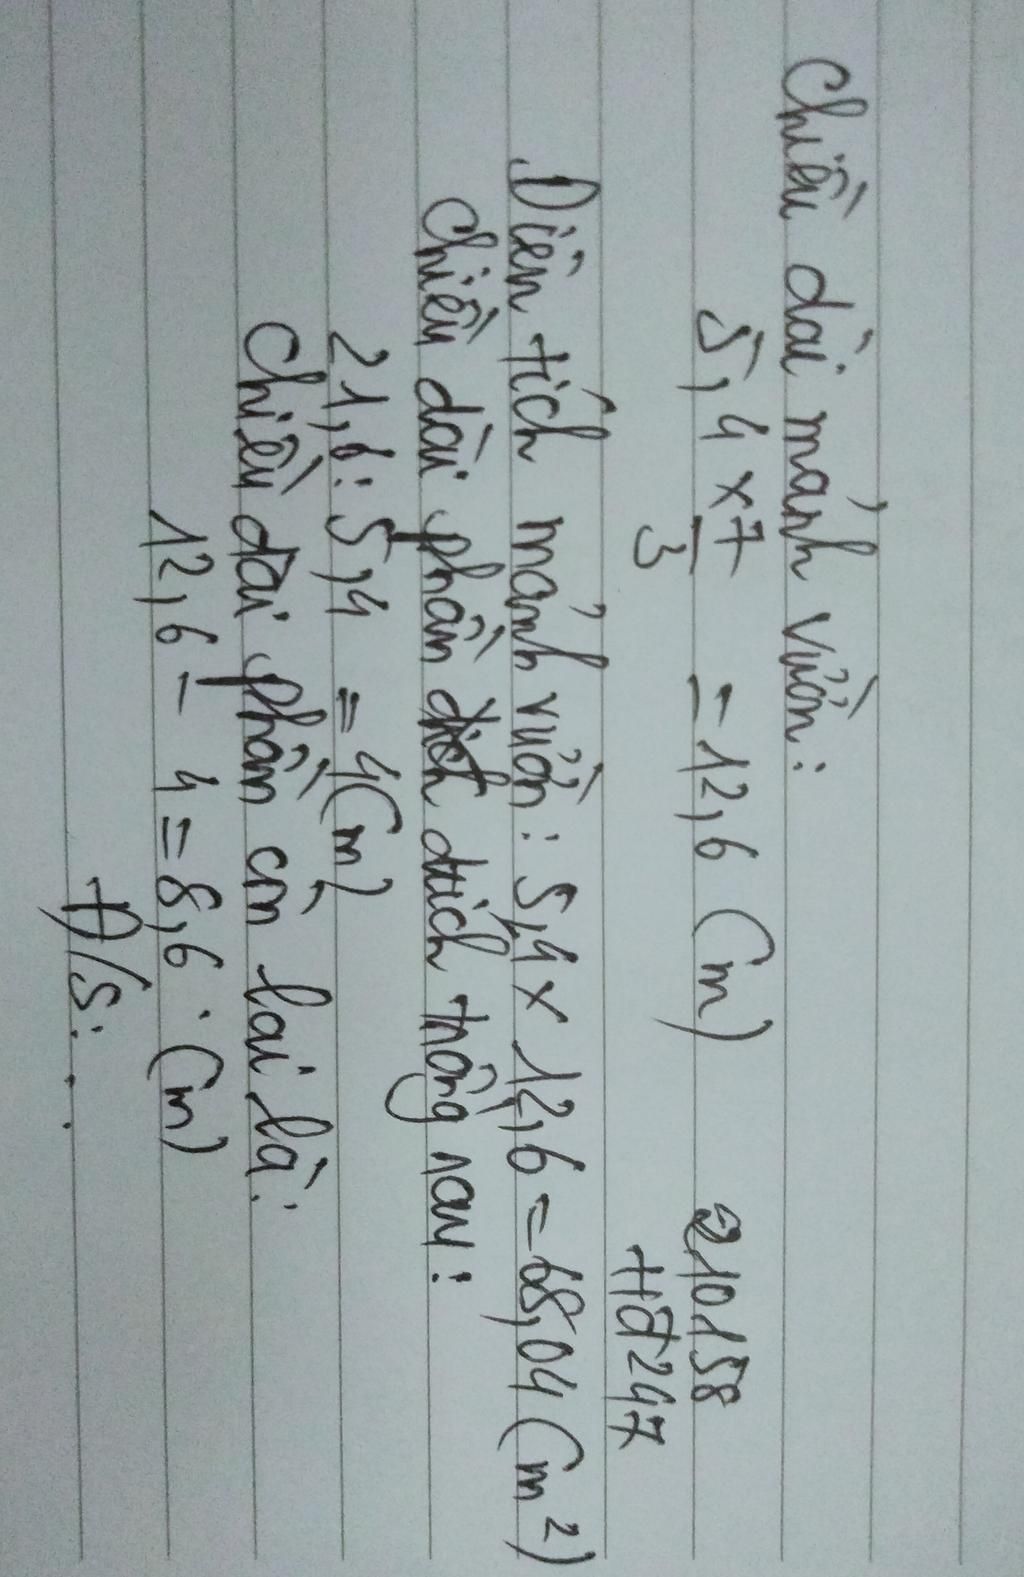 Chiều dài mảnh vườn:
5,4 × 7/3 = 12,6 (m)
210158
HĐ247
Diện tích mảnh vườn: 5,4 × 12,6 = 68,04 (m²)
Chiều dài phần diện tích trồng rau:
21,6 : 5,4 = 4(m)
Chiều dài phần còn lại là:
12,6 - 4 = 8,6 (m)
Đ/S: ...